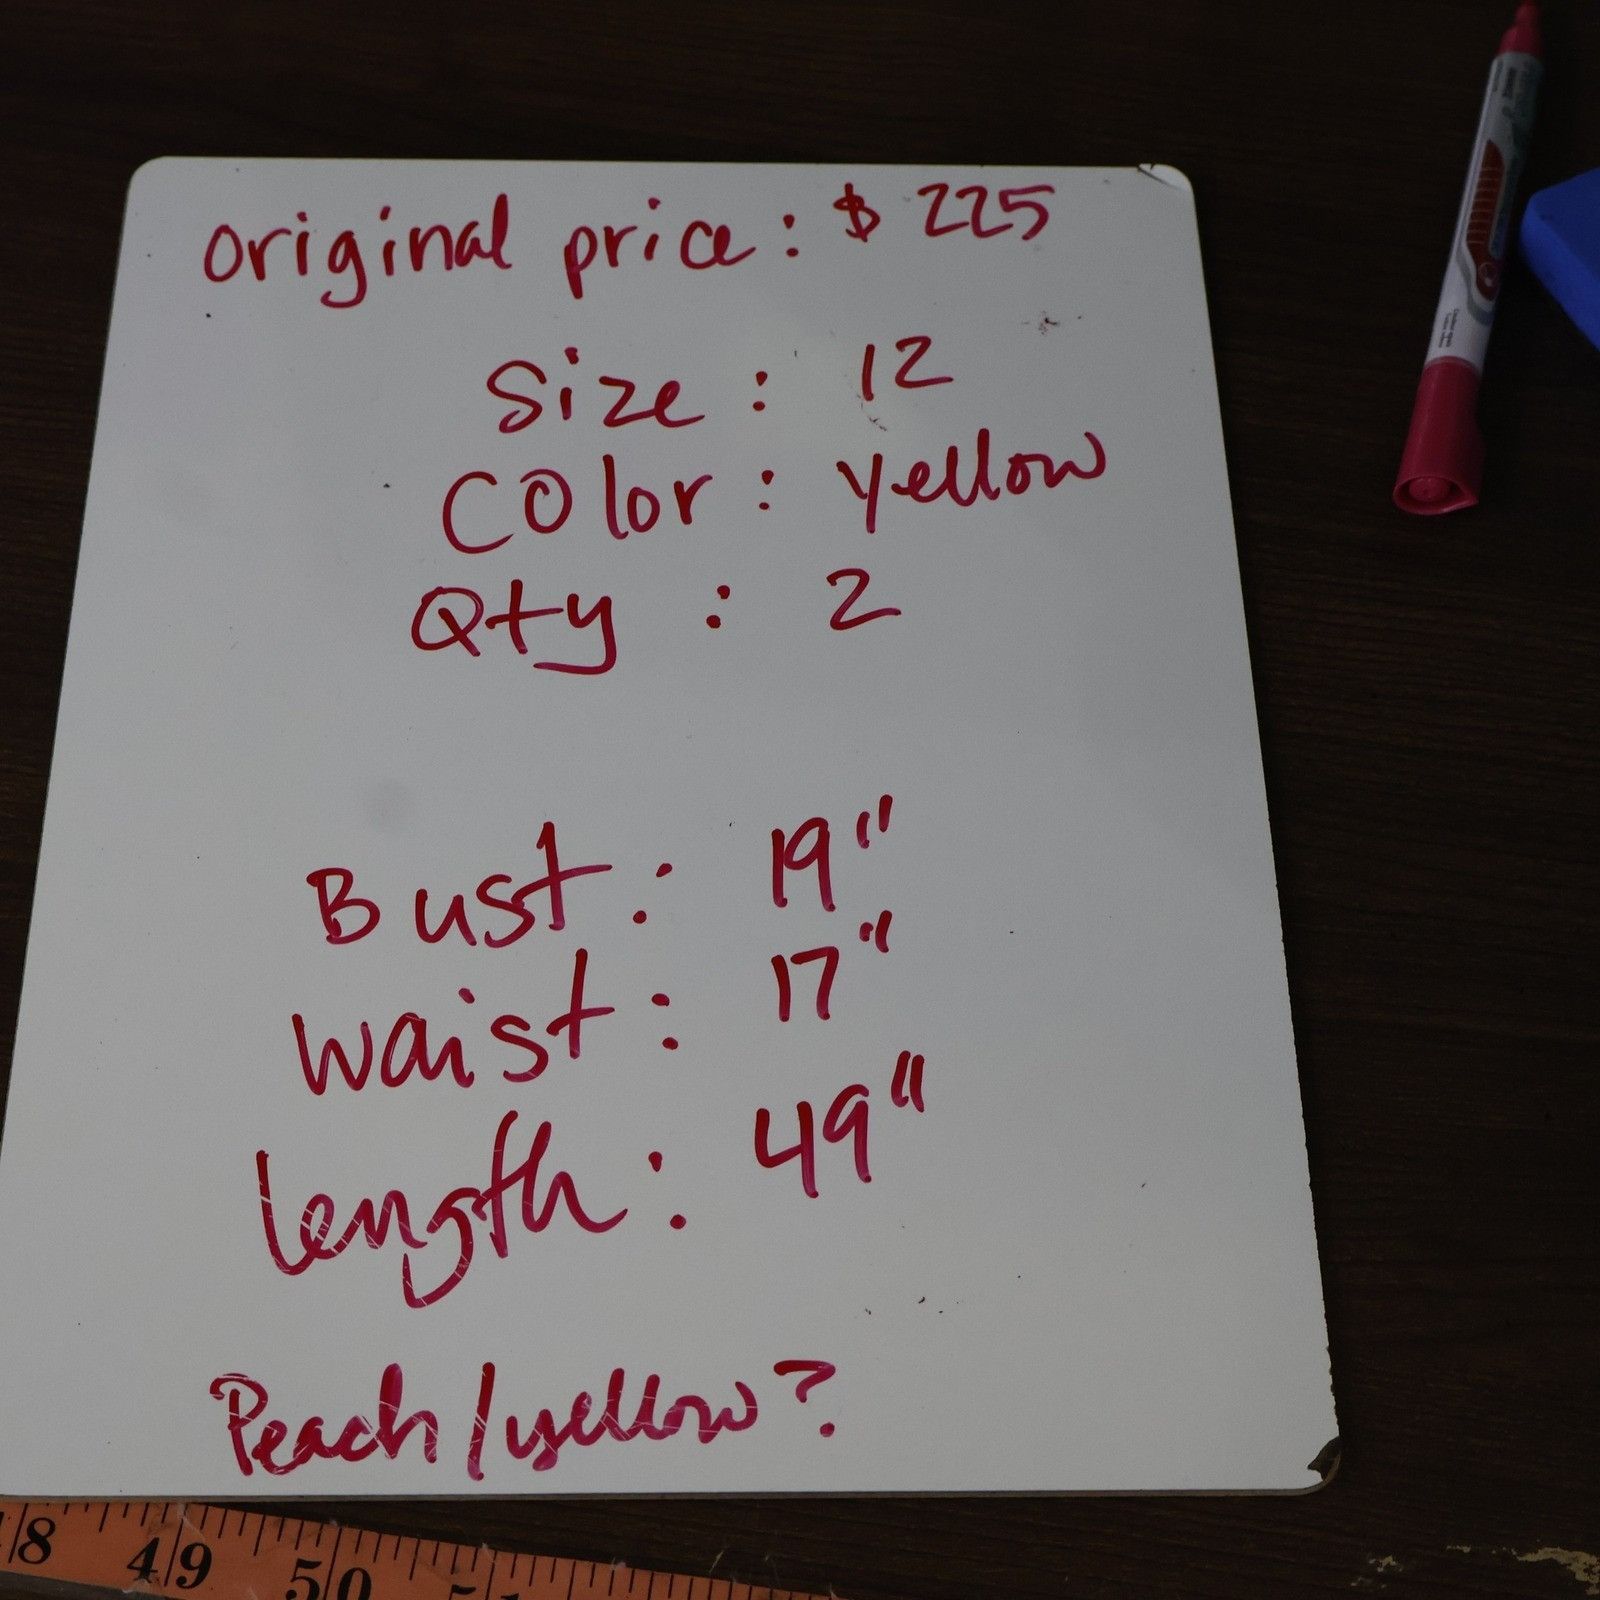 original price: $ 225
Size: 12
Color: yellow
Qty: 2
Bust: 19"
Waist: 17"
length: 49"
Peach/yellow?
8 49 50 51